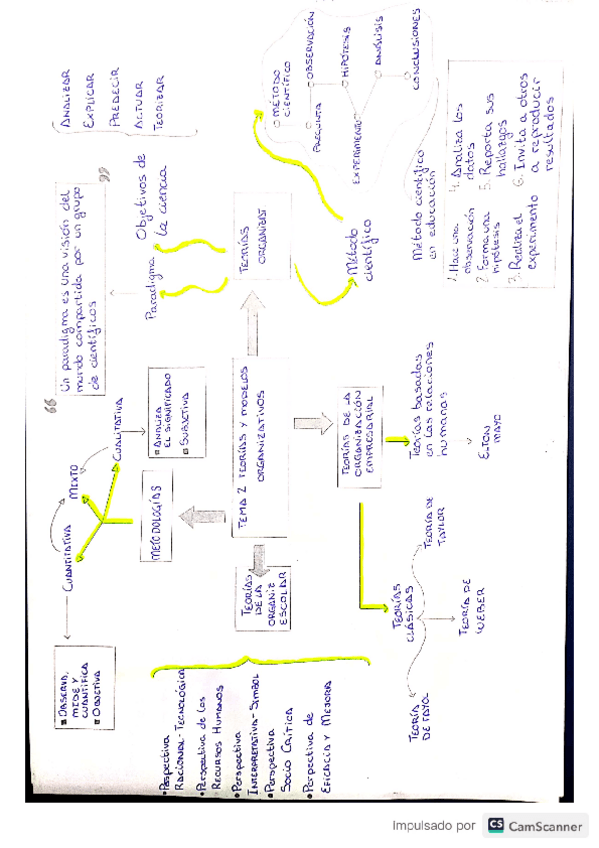 Observa,
mide y
cuantifica
Objetiva
Cuantitativa
Mixto
Cualitativa
Analiza
el significado
Subjetiva
Metodologías
“
Un paradigma es una visión del
mundo compartida por un grupo
de científicos
”
Paradigma
Objetivos de
la ciencia
Analizar
Explicar
Predecir
Actuar
Teorizar
Tema 2 Teorías y modelos
organizativos
Teorías
organizat
Método
científico
Método
científico
Pregunta
Observación
Hipótesis
Experimento
Análisis
Conclusiones
Método científico
en educación
1. Hace una
observación
2. Forma una
hipótesis
3. Realiza el
experimento
4. Analiza los
datos
5. Reporta sus
hallazgos
6. Invita a otros
a reproducir
resultados
Teorías
de la
organiz
escolar
• Perspectiva
Racional-Tecnológica
• Perspectiva de los
Recursos Humanos
• Perspectiva
Interpretativa-Simbol
• Perspectiva
Socio Crítica
• Perspectiva de
Eficacia y Mejora
Teorías de la
organización
empresarial
Teorías
clásicas
Teoría
de Fayol
Teoría de
Weber
Teoría de
Taylor
Teorías basadas
en las relaciones
humanas
Elton
Mayo
Impulsado por CS CamScanner